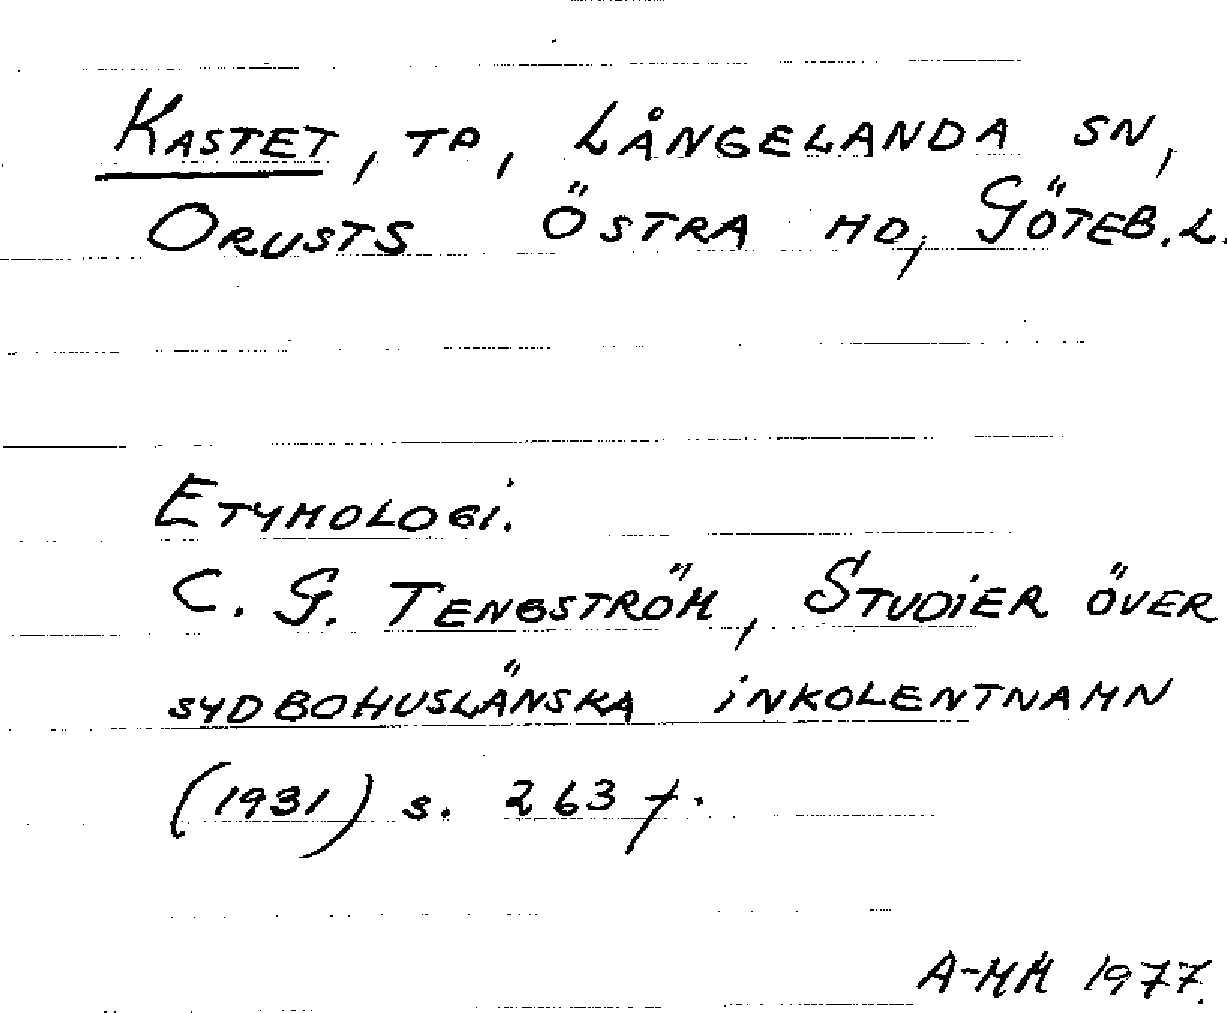 KASTET, TP, LÅNGELANDA SN,
ORUSTS ÖSTRA HD, GÖTEB.L.
ETYMOLOGI.
C. G. TENGSTRÖM, STUDIER ÖVER
SYDBOHUSLÄNSKA INKOLENTNAMN
(1931) s. 263 f.
A-MM 1977.